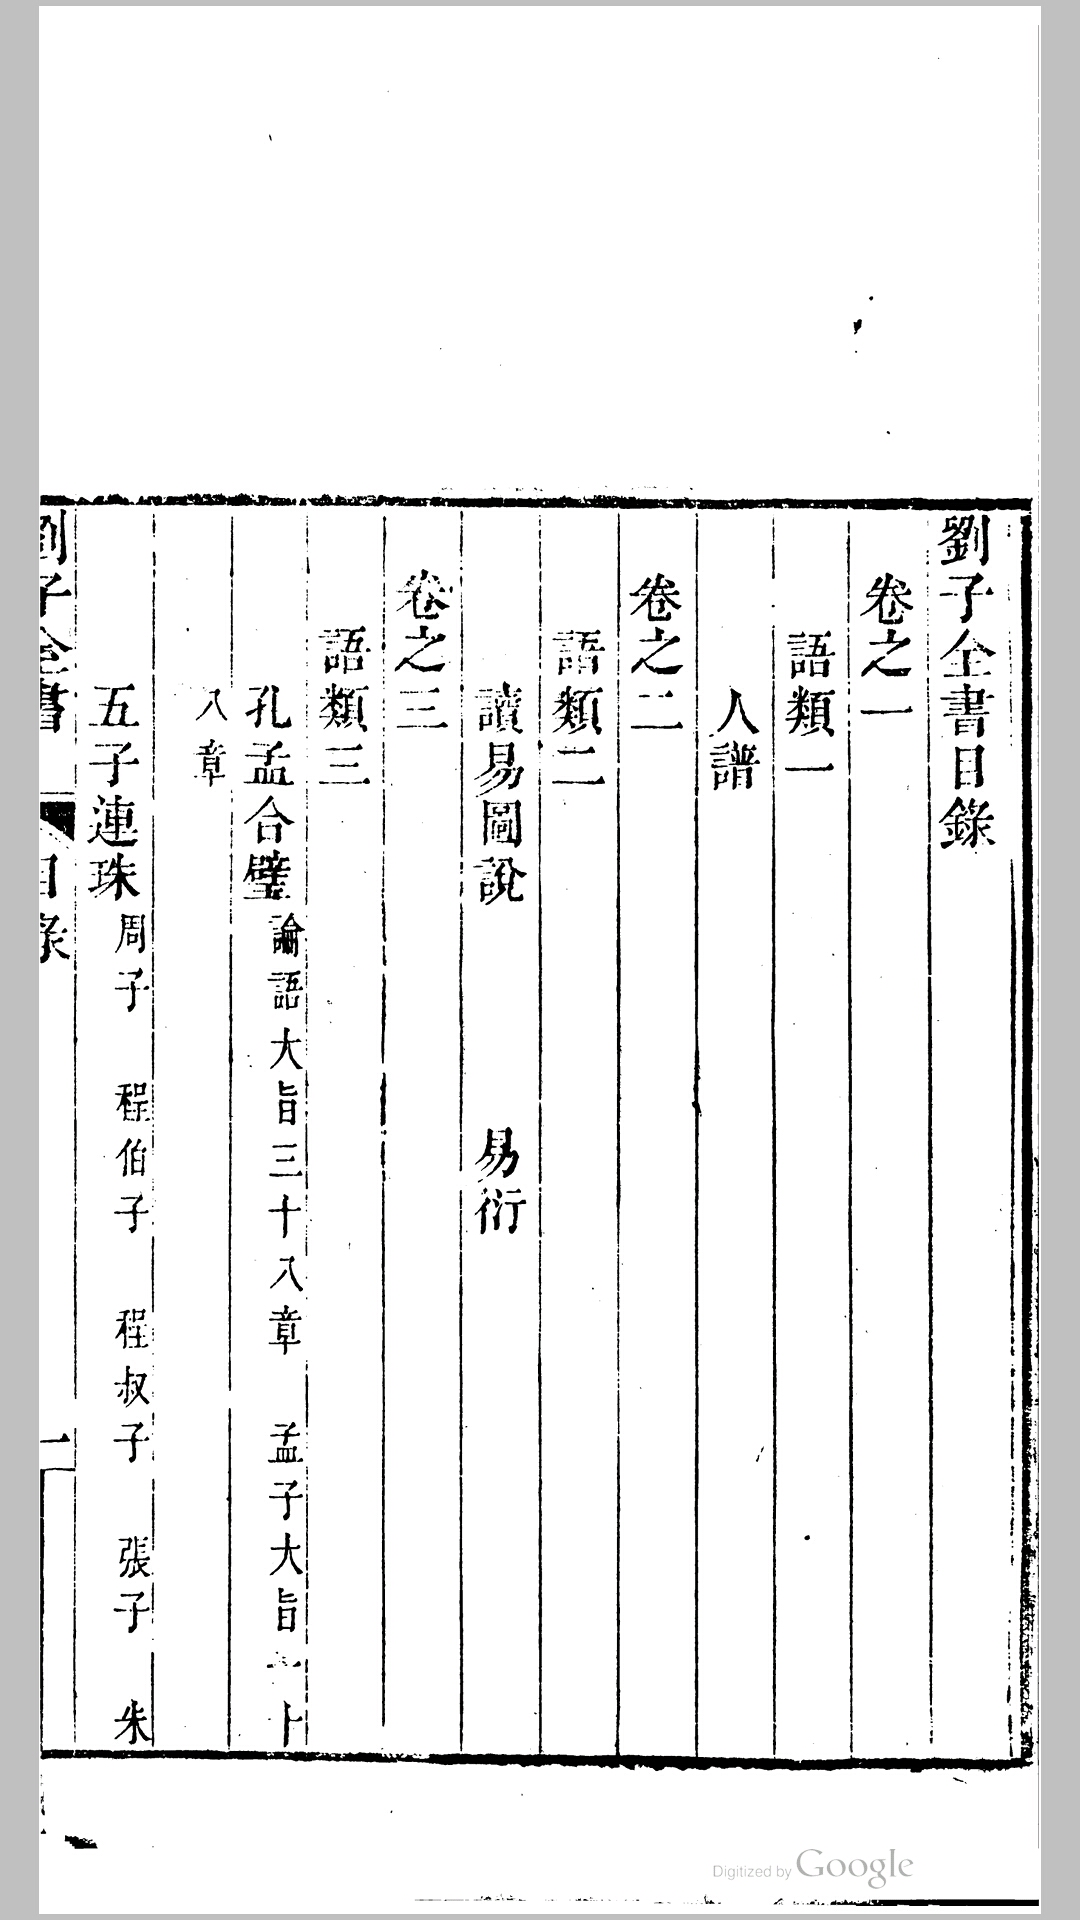 劉子全書目錄
卷之一
語類一
人譜
卷之二
語類二
讀易圖說　易衍
卷之三
語類三
孔孟合璧　論語大旨三十八章　孟子大旨一十
八章
五子連珠　周子　程伯子　程叔子　張子　朱
劉子全書　目錄　一
Digitized by Google